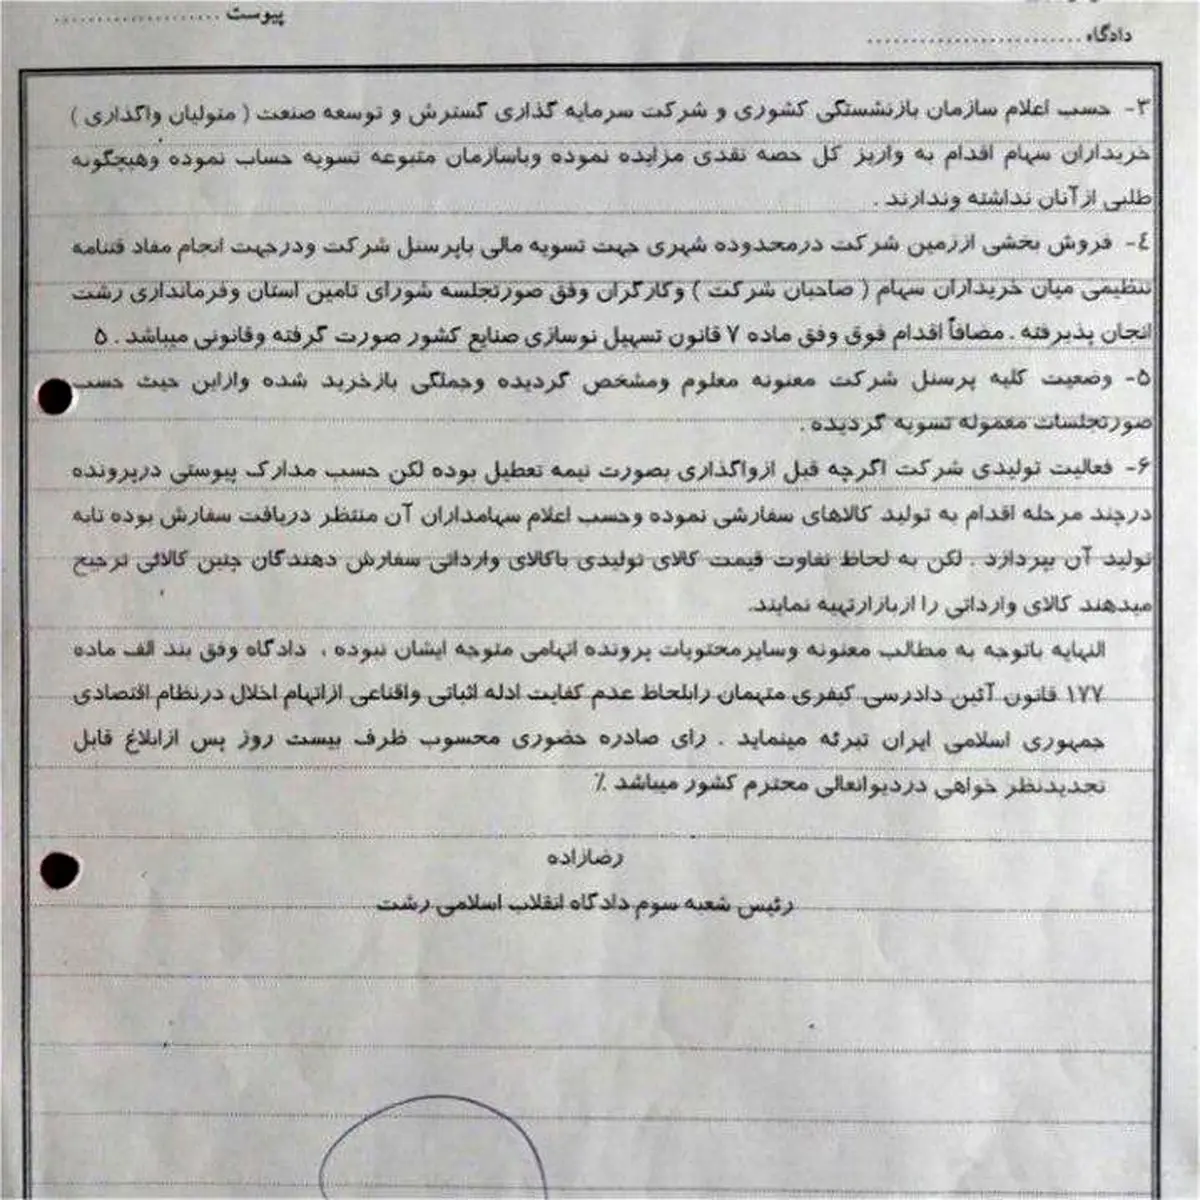 پیوست ....................
دادگاه ..........................
۳- حسب اعلام سازمان بازنشستگی کشوری و شرکت سرمایه گذاری گسترش و توسعه صنعت ( متولیان واگذاری )
خریداران سهام اقدام به واریز کل حصه نقدی مزایده نموده وباسازمان متبوعه تسویه حساب نموده وهیچگونه
طلبی ازآنان نداشته وندارند .
۴- فروش بخشی اززمین شرکت درمحدوده شهری جهت تسویه مالی باپرسنل شرکت ودرجهت انجام مفاد قتنامه
تنظیمی میان خریداران سهام ( صاحبان شرکت ) وکارگران وفق صورتجلسه شورای تامین استان وفرمانداری رشت
انجان پذیرفته . مضافاً اقدام فوق وفق ماده ۷ قانون تسهیل نوسازی صنایع کشور صورت گرفته وقانونی میباشد . ۵
۵- وضعیت کلیه پرسنل شرکت معنونه معلوم ومشخص گردیده وجملگی بازخرید شده وازاین حیث حسب
صورتجلسات معموله تسویه گردیده .
۶- فعالیت تولیدی شرکت اگرچه قبل ازواگذاری بصورت نیمه تعطیل بوده لکن حسب مدارک پیوستی درپرونده
درچند مرحله اقدام به تولید کالاهای سفارشی نموده وحسب اعلام سهامداران آن منتظر دریافت سفارش بوده تابه
تولید آن بپردازد . لکن به لحاظ تفاوت قیمت کالای تولیدی باکالای وارداتی سفارش دهندگان چنین کالائی ترجیح
میدهند کالای وارداتی را ازبازارتهیه نمایند.
النهایه باتوجه به مطالب معنونه وسایرمحتویات پرونده اتهامی متوجه ایشان نبوده ، دادگاه وفق بند الف ماده
۱۷۷ قانون آئین دادرسی کیفری متهمان رابلحاظ عدم کفایت ادله اثباتی واقناعی ازاتهام اخلال درنظام اقتصادی
جمهوری اسلامی ایران تبرئه مینماید . رای صادره حضوری محسوب ظرف بیست روز پس ازابلاغ قابل
تجدیدنظر خواهی دردیوانعالی محترم کشور میباشد ./
رضازاده
رئیس شعبه سوم دادگاه انقلاب اسلامی رشت